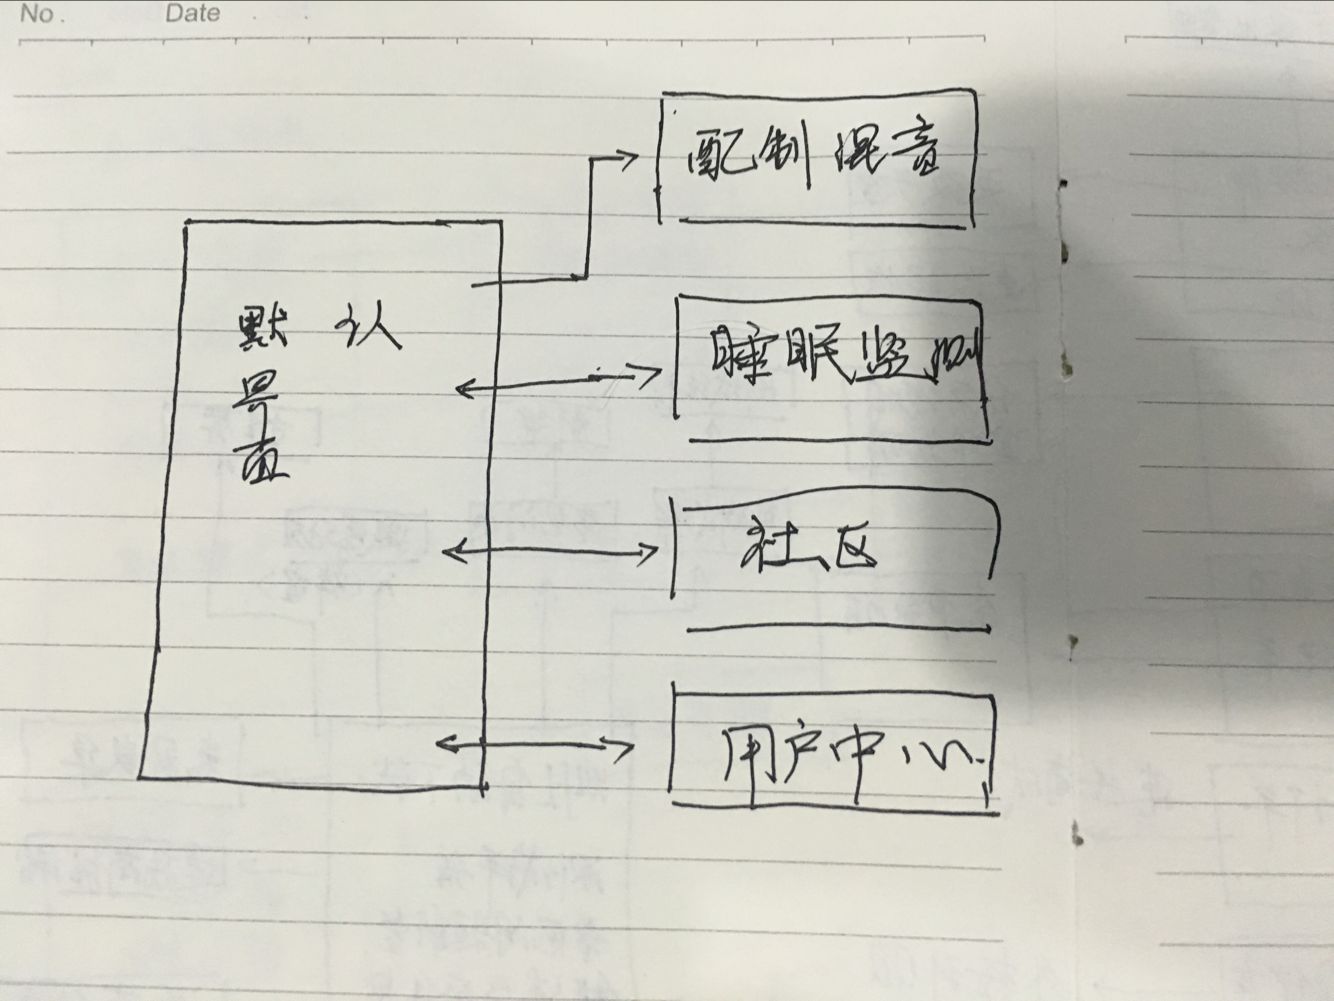 No.
Date
默认
界面
配制混音
睡眠监测
社区
用户中心